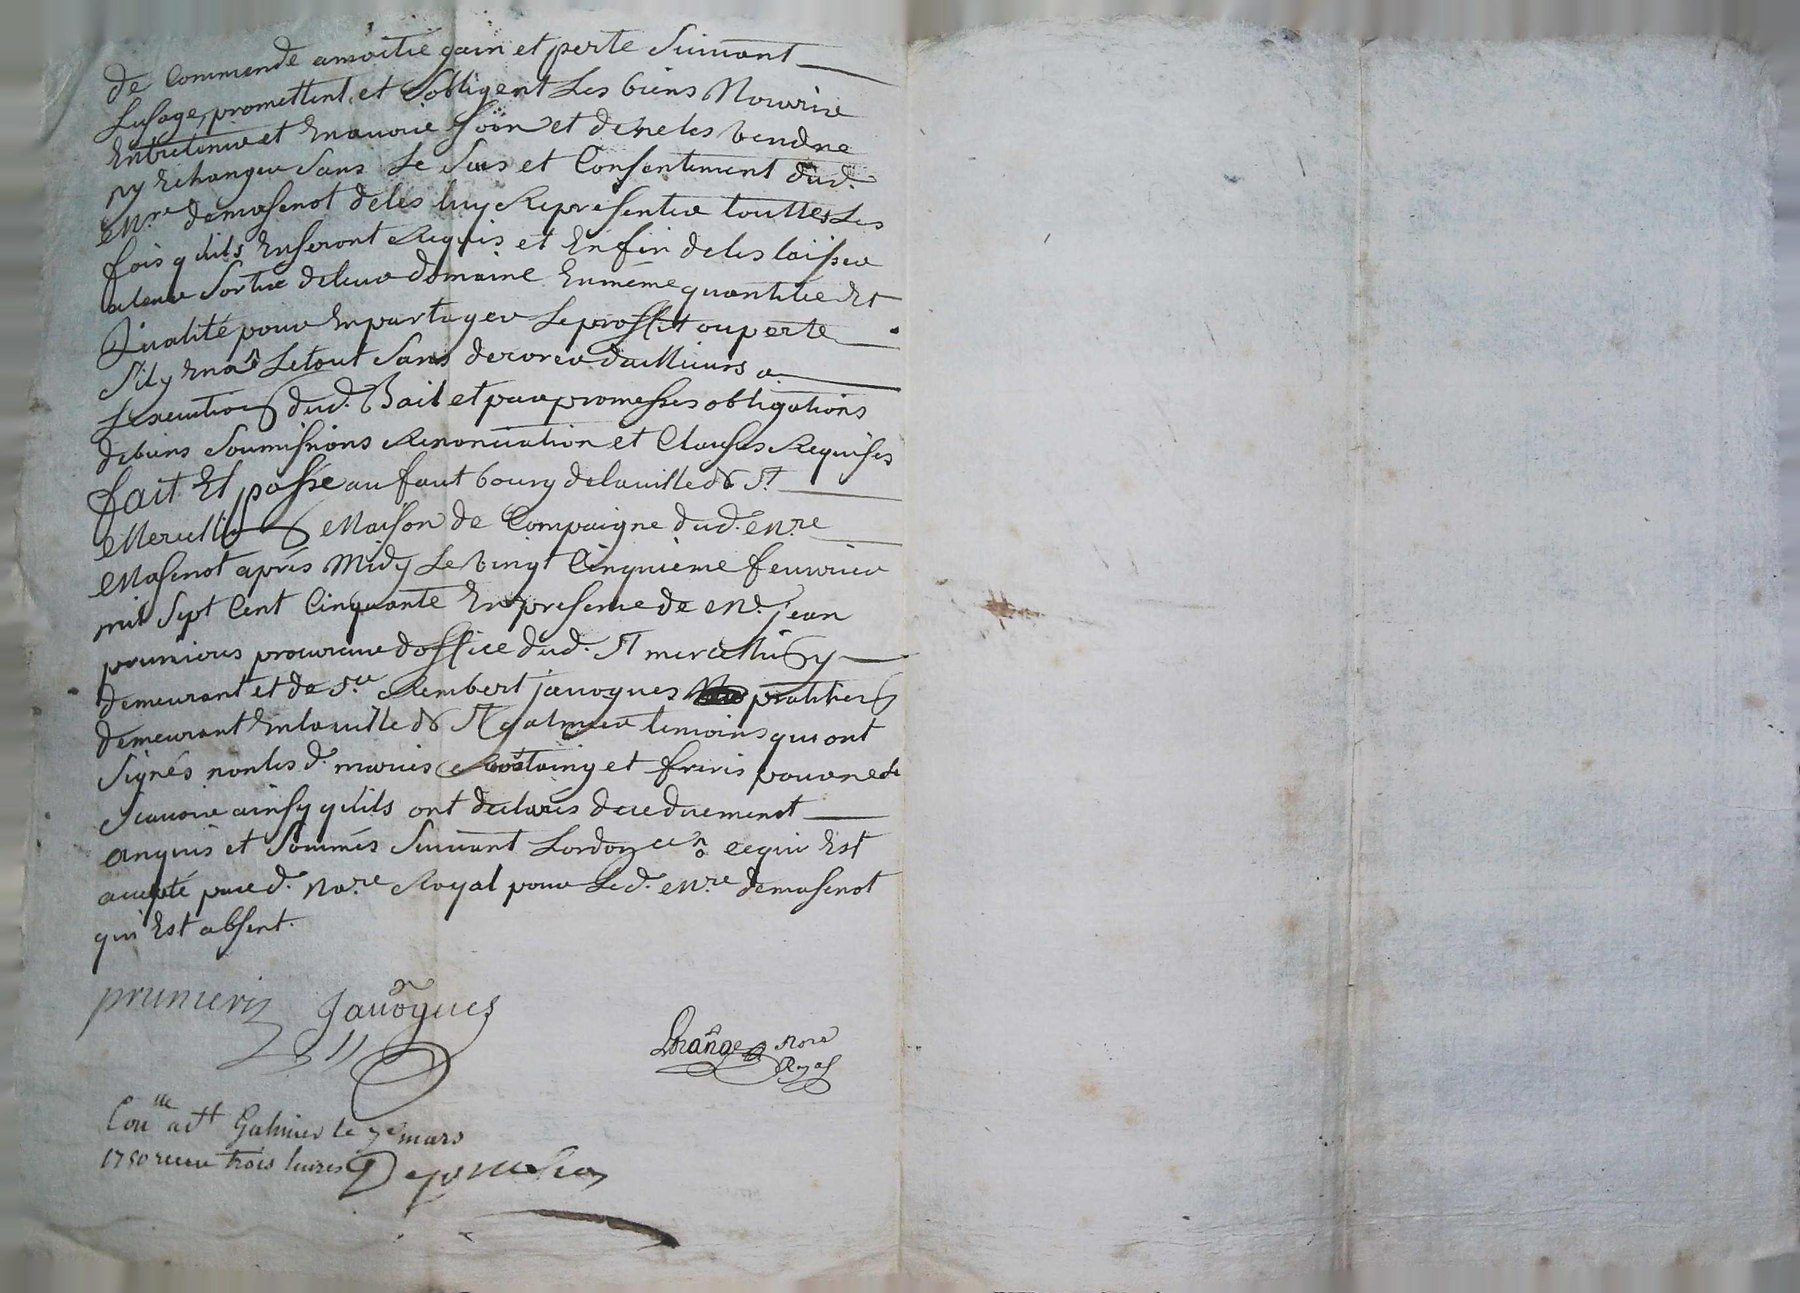 de Commende amoitié gain et perte Suivant
Lusage, promettent, et Sobligent Les biens Nourir
Entretenir et Enavoir Soin et dene les vendre
ny Echanger Sans Le Sus et Consentement dud.
Mre demasenot deles luy Representer touttes Les
fois quils Enseront Requis et Enfin deles laisser
aleur Sortie deleur domaine Enmême quantitée Et
Qualité pour Enpartager Leproffit ouperte
Sily Ena Letout Sans deroger dailleurs a
Lexecution dud. Bail et par promesses obligations
debiens Soumissions Renonciation et Clauses Requises
fait Et passé au fautbourg delaville de St.
Marcellin Maison de Compaigne dud. Mre
Masenot après Midy Le vingt Cinquieme feuvrier
mil Sept Cent Cinquante Enpresence de Me. jean
prunieres procureur doffice dud. St marcellin y
demeurant et de Sr. Rembert javogues praticien
demeurant Enlaville de St galmier temoins qui ont
Signés nonles d. maries Rostaing et freris pour ne le
Scavoir ainsy quils ont declarés de ce duement
anquis et Sommés Suivant Lordonce. cequi Est
accepté par d. Nore Royal pour Led. Mre demasenot
qui Est absent.
prunieris Javogues
Nore
Royal
Conlle a St Galmier le 7e mars
1750 recu trois livres